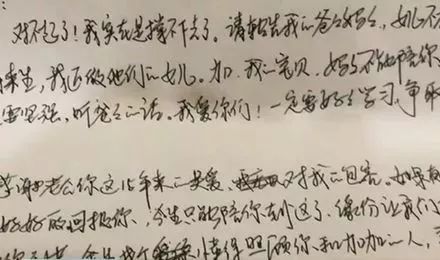 ：
对不起了！我实在是撑不去了。请转告我的爸爸妈妈，女儿不
来生，我还做他们的女儿。加，我的宝贝，妈妈不能陪你
要坚强，听爸爸的话。我爱你们！一定要好好学习，争取
谢谢老公你这15年来的关爱，对我的包容。如果有
好好的回报你，今生只能陪你走到这了，缘份让我们
懂得照顾你和加加的人，